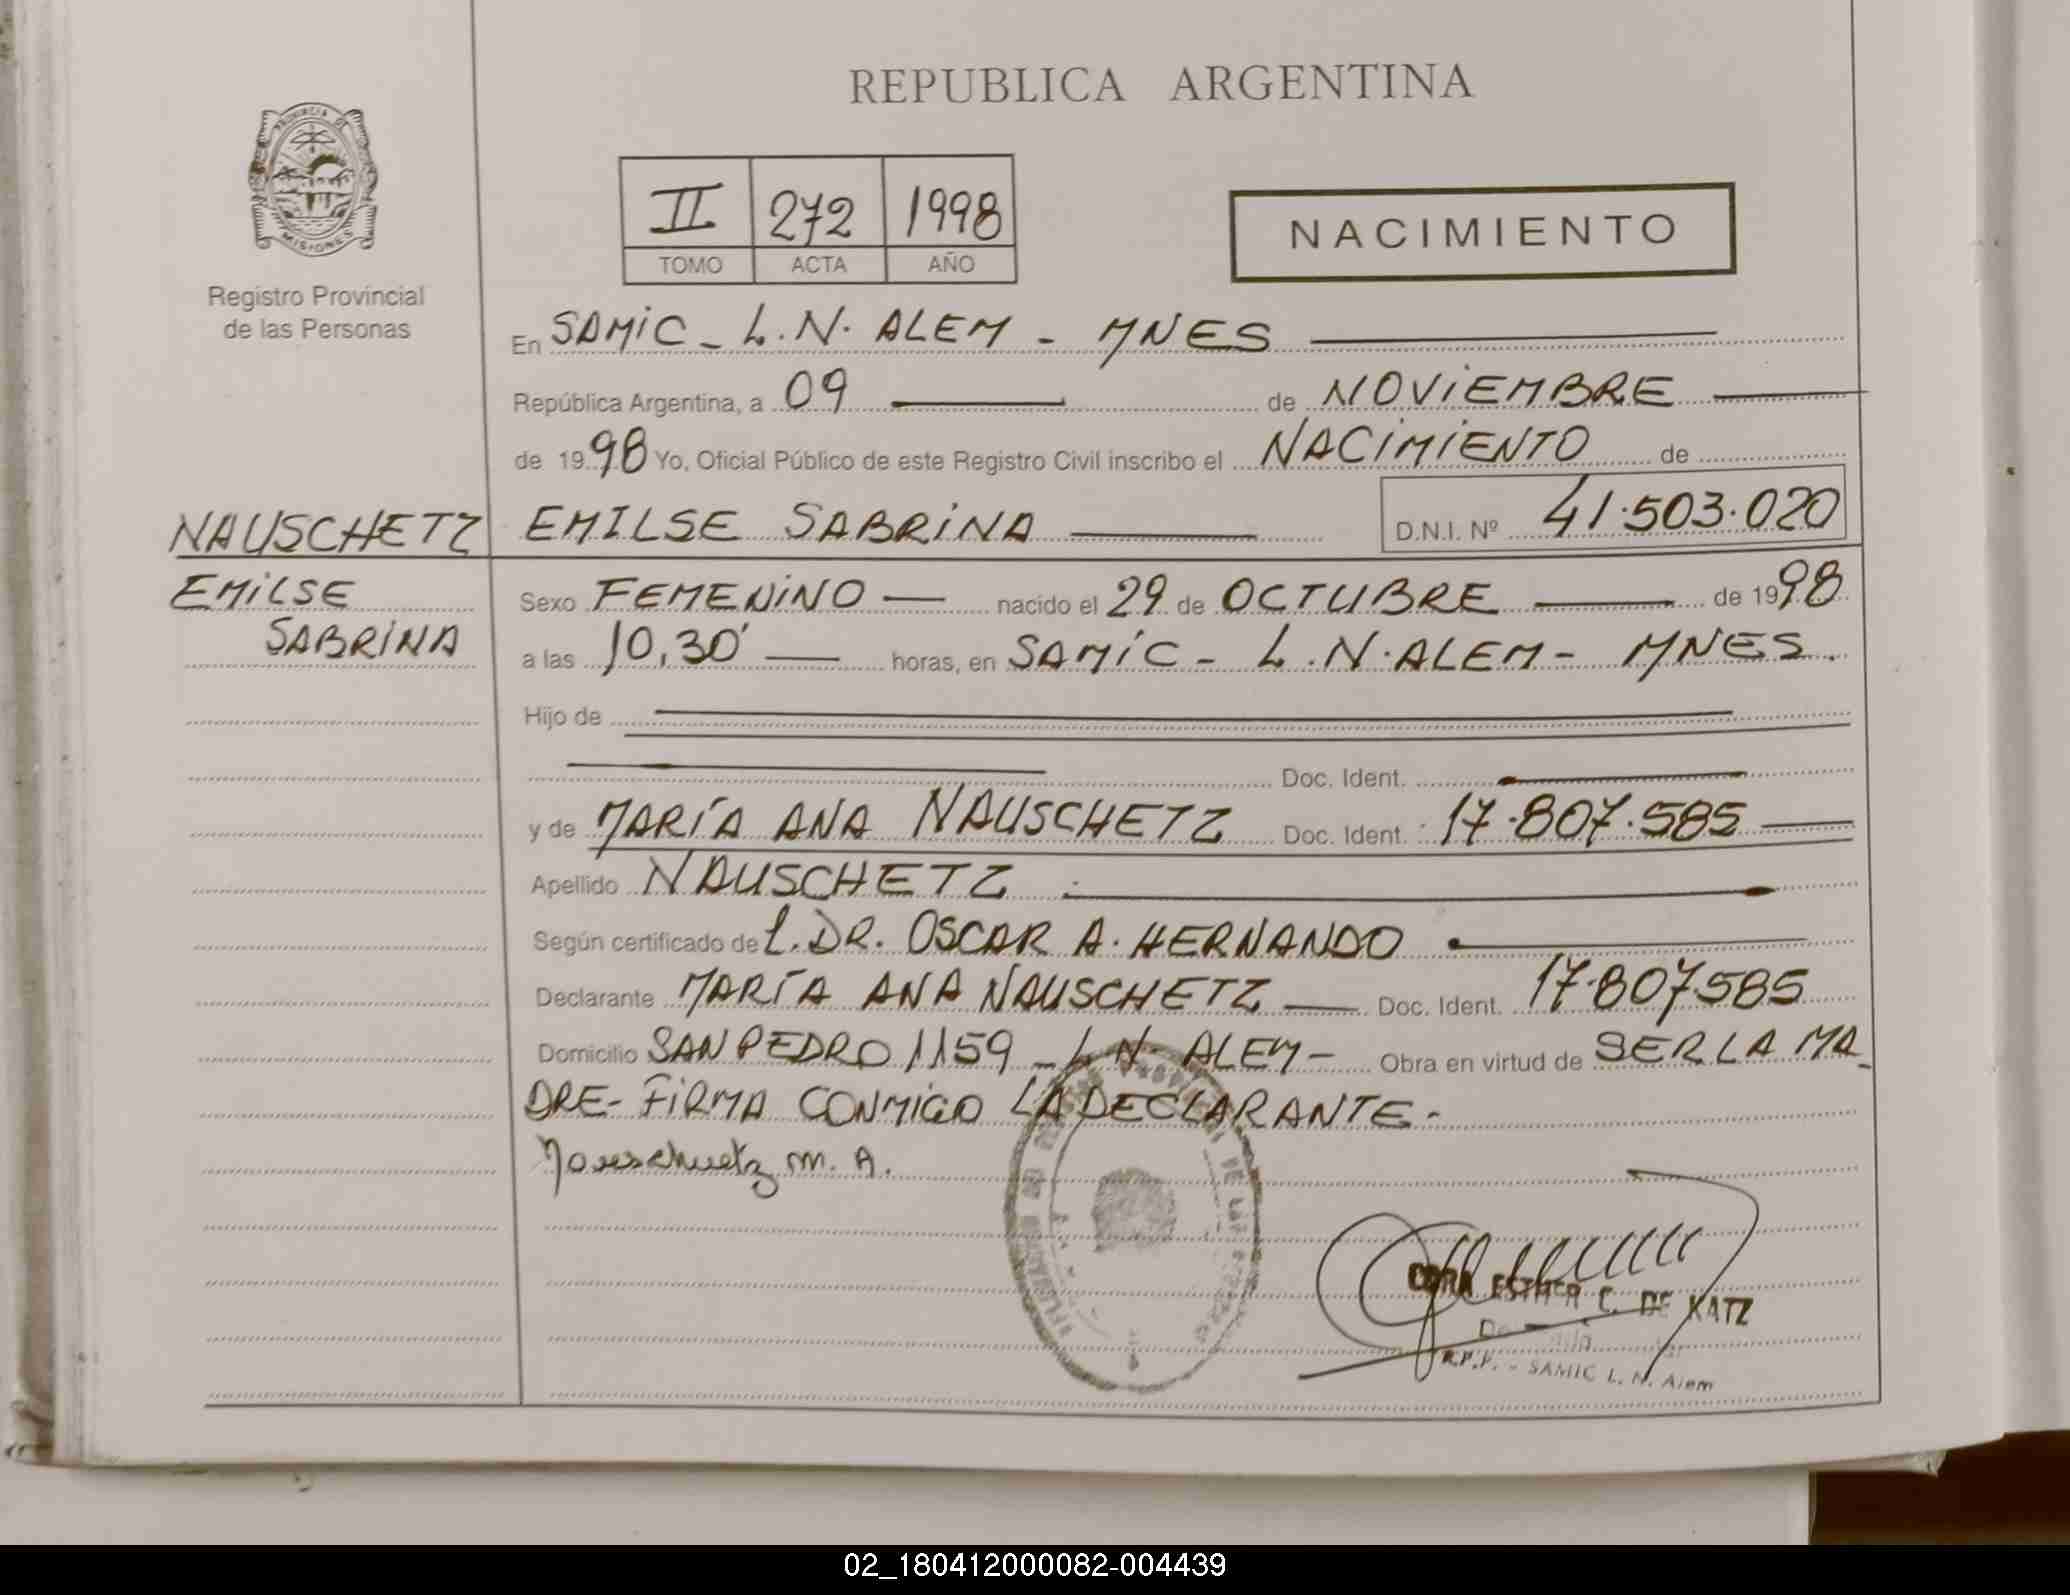 REPUBLICA ARGENTINA
PROVINCIA DE
MISIONES
Registro Provincial
de las Personas
II 272 1998
TOMO ACTA AÑO
NACIMIENTO
En SAMIC - L.N. ALEM - MNES
República Argentina, a 09 de NOVIEMBRE
de 1998 Yo, Oficial Público de este Registro Civil inscribo el NACIMIENTO de
NAUSCHETZ EMILSE SABRINA D.N.I. Nº 41.503.020
EMILSE Sexo FEMENINO nacido el 29 de OCTUBRE de 1998
SABRINA a las 10,30' horas, en SAMIC - L.N. ALEM - MNES.
Hijo de
Doc. Ident.
y de MARÍA ANA NAUSCHETZ Doc. Ident. 17.807.585
Apellido NAUSCHETZ
Según certificado de L. DR. OSCAR A. HERNANDO
Declarante MARÍA ANA NAUSCHETZ Doc. Ident. 17.807.585
Domicilio SAN PEDRO 1159 - L.N. ALEM - Obra en virtud de SER LA MA-
DRE - FIRMA CONMIGO LA DECLARANTE -
Nauschuetz M. A.
ESTHER C. DE KATZ
R.P.P. - SAMIC L. N. Alem
02_180412000082-004439